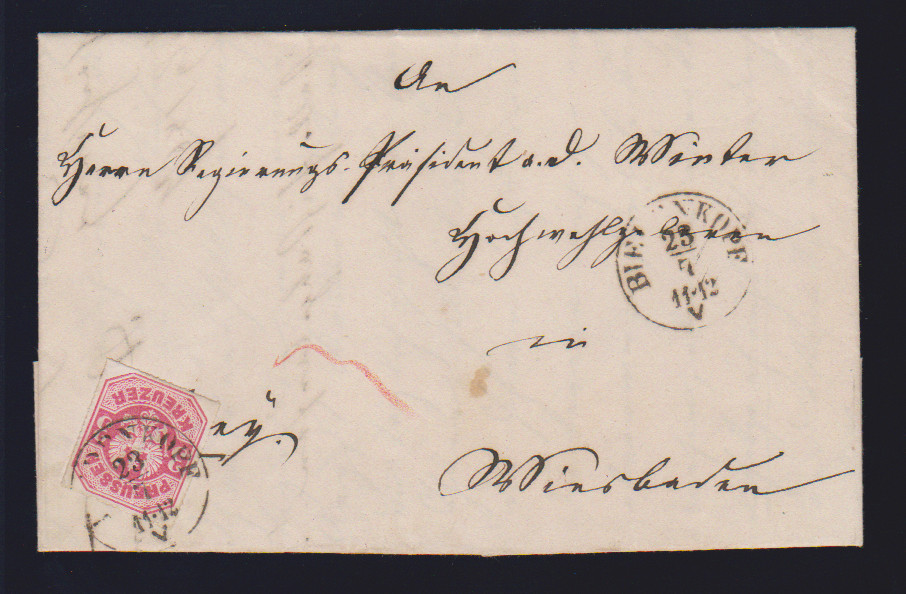 An
Herrn Regierungs-Präsident a.d. Winter
Hochwohlgeboren
in
Wiesbaden
BIEDENKOPF
23
7
11-12
V
PREUSSEN
KREUZER
BIEDENKOPF
23
7
11-12
V